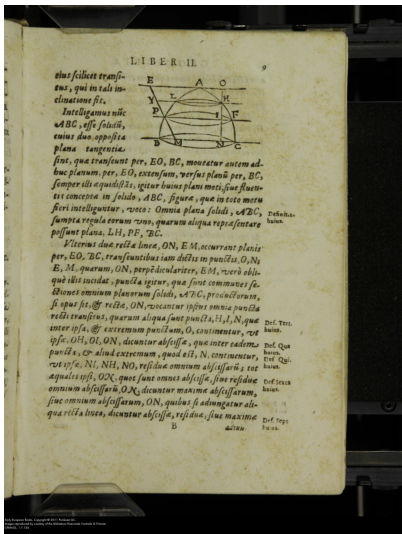 LIBER II. 9
eius scilicet transi-
tus, qui in tali in-
clinatione fit.
Intelligamus nũc
ABC, esse solidũ,
cuius duo opposita
plana tangentia
sint, quæ transeunt per, EO, BC, moueatur autem ad-
huc planum, per, EO, extensum, versus planũ per, BC,
semper illi æquidistãs, igitur huius plani moti, siue fluen-
tis concepta in solido, ABC, figuræ, quæ in toto motu
fieri intelliguntur, voco: Omnia plana solidi, ABC,
sumpta regula eorum vno, quarum aliqua repræsentare
possunt plana, LH, PF, BC.
Vlterius duæ rectæ lineæ, ON, EM, occurrant planis
per, EO, BC, transeuntibus iam dictis in punctis, O, N;
E, M, quarum, ON, perpẽdiculariter, EM, verò obli-
què illis incidat, puncta igitur, quæ sunt communes se-
ctiones omnium planorum solidi, ABC, productorum,
si opus sit, & rectæ, ON, vocantur ipsius omnia puncta
recti transitus, quarum aliqua sunt puncta, H, I, N, quæ
inter ipsa, & extremum punctum, O, continentur, vt
ipsæ, OH, OI, ON, dicuntur abscissæ, quæ inter eadem
puncta, & aliud extremum, quod est, N, continentur,
vt ipsæ, NI, NH, NO, residuæ omnium abscissarũ; tot
æquales ipsi, ON, quot sunt omnes abscissæ, siue residuæ
omnium abscissarũ, ON, dicuntur maximæ abscissarum,
siue omnium abscissarum, ON, quibus si adiungatur ali-
qua recta linea, dicuntur abscissæ, residuæ, siue maximæ
B
E A O
L H
Y
P I F
B M N C
Definitio
huius.
Def. Tert.
huius.
Def. Qua
huius.
Def. Qui.
huius.
Def. Sexta
huius.
Def. Sept
huius.
Early European Books, Copyright © 2011 ProQuest LLC.
Images reproduced by courtesy of the Biblioteca Nazionale Centrale di Firenze.